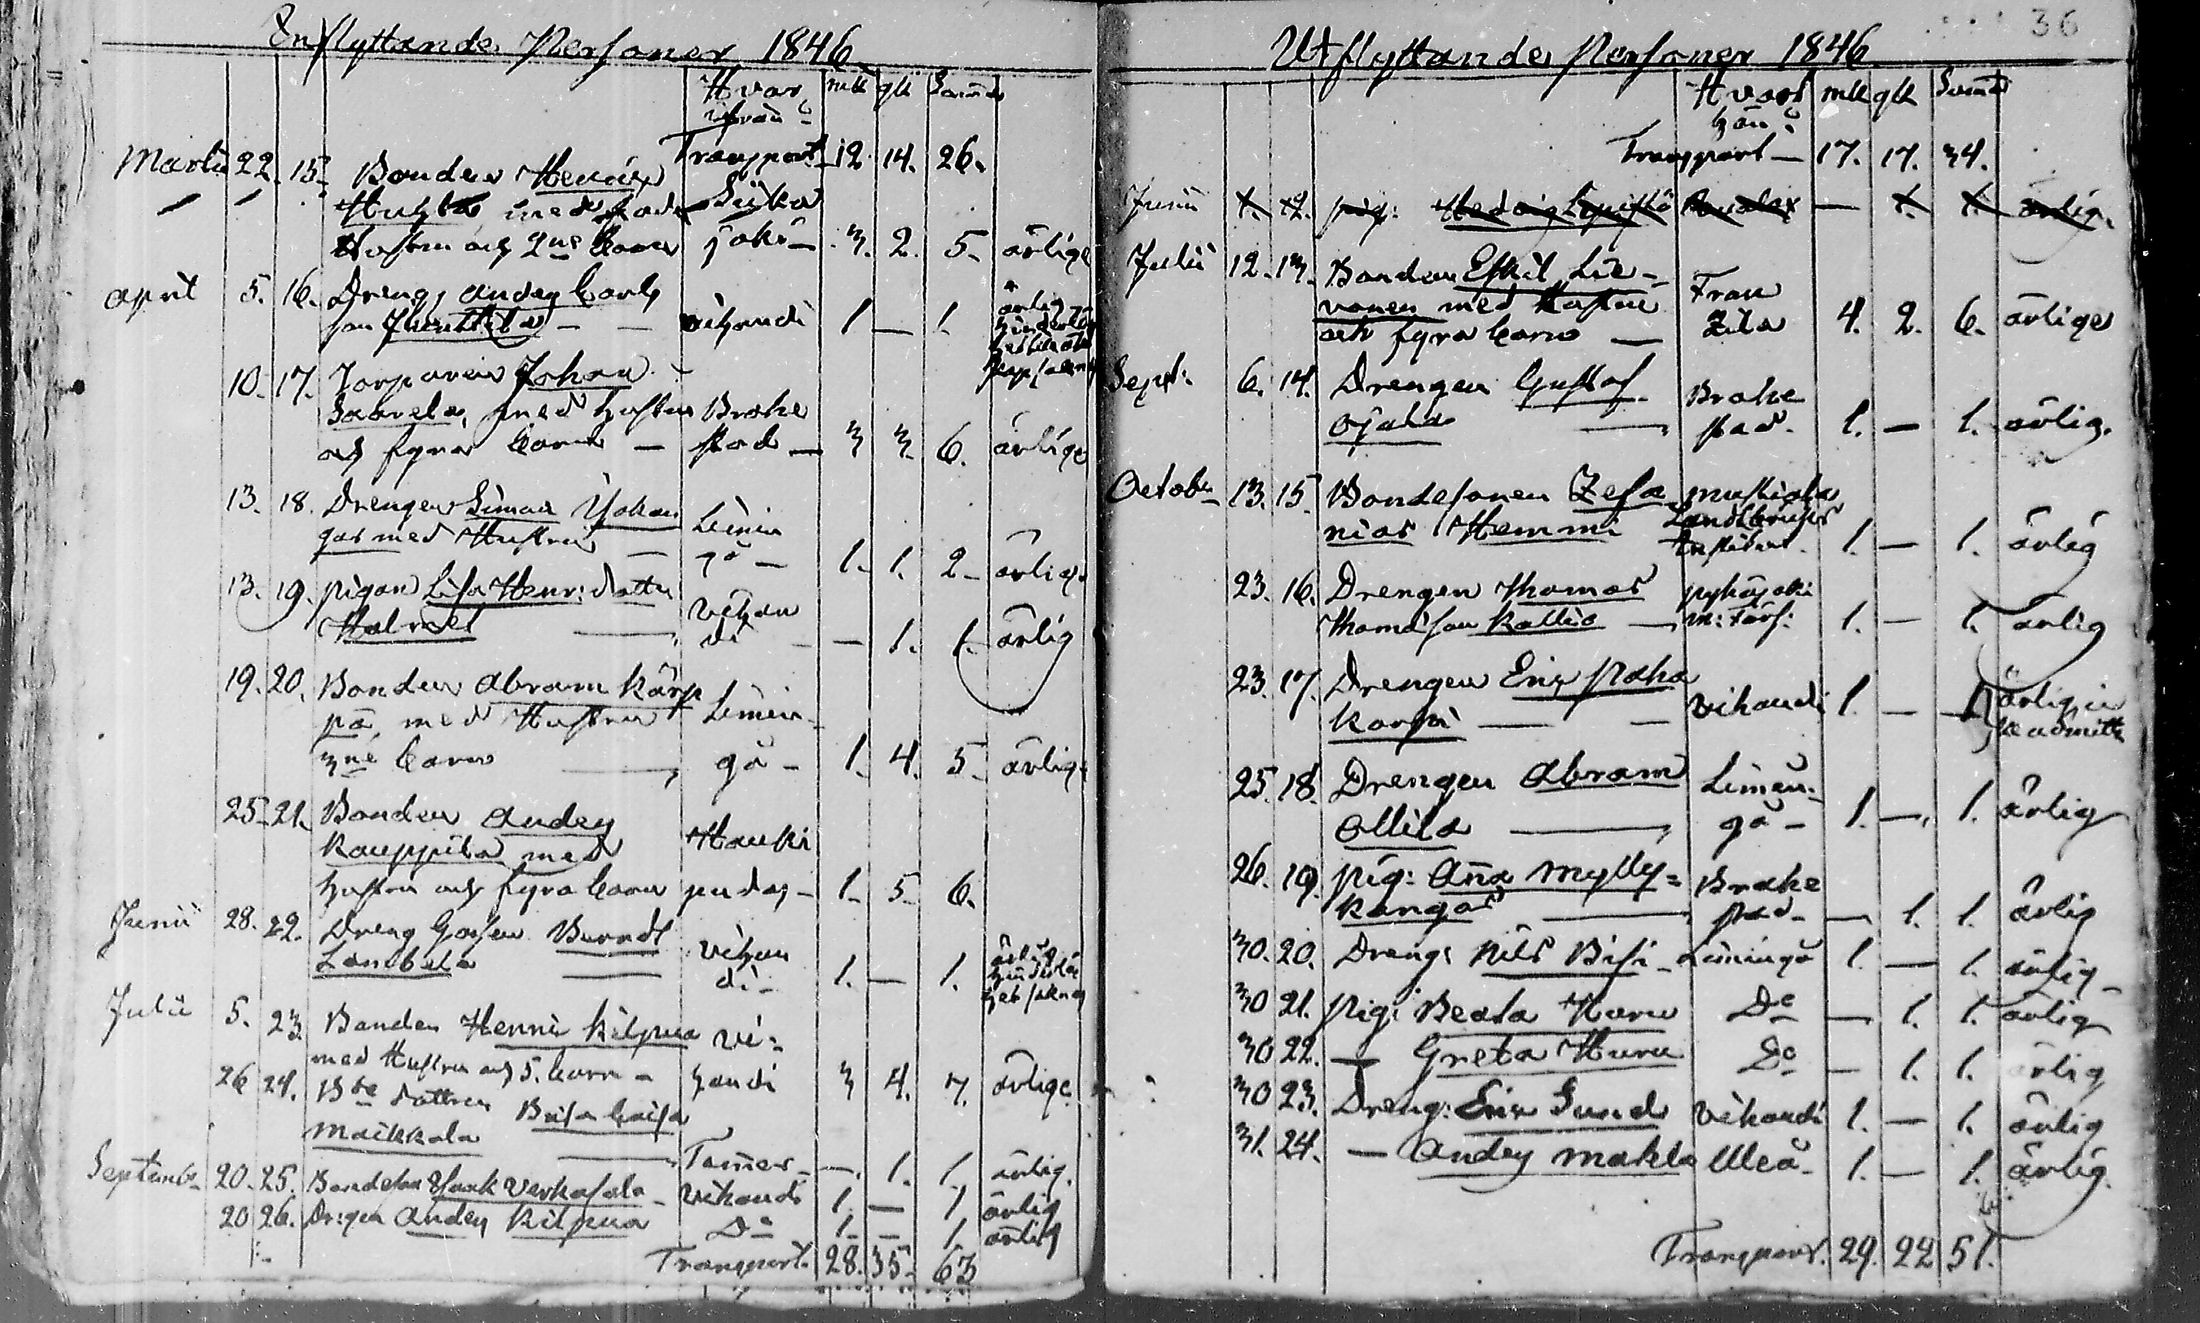 Inflyttande Personer 1846
Hvar ifrån mk qk Suma
Transport 12. 14. 26.
Martii 22. 15. Bonden Henric
Huhta med
Hustru och 2ne barn Siika joki 3. 2. 5. ärlige
April 5. 16. Dreng. Anders Carls
son Junttila Vihandi 1. — 1. ärlig
10. 17. Torparen Johan
Saarela, med hustru
och fyra barn Brahe stad 3 3. 6. ärlige
13. 18. Drengen Simon Yohan
gas med Hustru Limin gå 1. 1. 2. ärlige
13. 19. pigan Lisa Henr: dotter
Vihan di — 1. 1. ärlig
19. 20. Bonden Abram Kärp
pä, med Hustru
3ne barn Limin gå 1. 4. 5. ärlige
25. 21. Bonden Anders
Kauppila med
hustru och fyra barn Hauki pudas 1. 5. 6.
Junii 28. 22. Dreng Gossen Berndt
Lambela Vihan di 1. — 1.
Julii 5. 23. Bonden Henric Kilpua
med Hustru och 5. barn Vi: handi 3 4. 7. ärlige
26 24. Bde dottren Brita Caisa
Maikkala — 1. 1. ärlig.
Septemb. 20. 25. Bondeson Isaak Verkasala Vihandi 1. — 1 ärlig
20 26. Drengen Anders Kilpua Do 1. — 1 ärlig
Transport. 28. 35. 63
36
Utflyttande Personer 1846
Hvart hän mk qk Suma
Transport — 17. 17. 34.
Junii pig: Hedvig — 1. 1. ärlig.
Julii 12. 13. Bonden Eskil Lie-
vonen med Hustru
och fyra barn Fran tsila 4. 2. 6. ärlige
Sept: 6. 14. Drengen Gustaf
Ojala Brahe stad. 1. — 1. ärlig.
October 13. 15. Bondesonen Zefa
nias Hemmi Mustiala Landtbruks Institut. 1. — 1. ärlig
23. 16. Drengen Thomas
Thomasson Kallio pyhäjoki 1. — 1. ärlig
23. 17. Drengen Eric Paha
Karhu Vihandi 1. — 1
25. 18. Drengen Abram
Ollila Limin gå 1. — 1. ärlig
26. 19. pig: Aña Mylly=
kangas Brahe stad — 1. 1. ärlig
30. 20. Dreng: Nils Bisi Limingå 1. — 1. ärlig
30 21. pig: Beata Huru Do — 1. 1. ärlig
30 22. — Greta Huru Do — 1. 1. ärlig
30 23. Dreng: Eric Sund Vihandi 1. — 1. ärlig
31. 24. — Anders Makla Uleå 1. — 1. ärlig.
Transport. 29. 22 51.